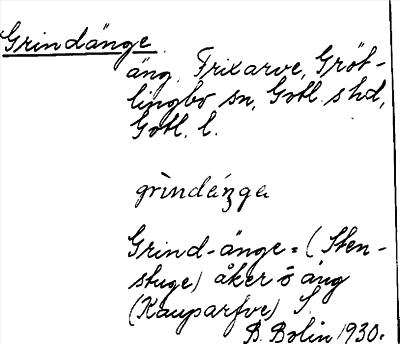 Grindänge
äng, Frixarve, Gröt-
lingbo sn, Gotl. s hd,
Gotl. l.
grindänga
Grind-änge = (Sten-
stuge) åker ö äng
(Kauparfve) S.
B. Bolin 1930.